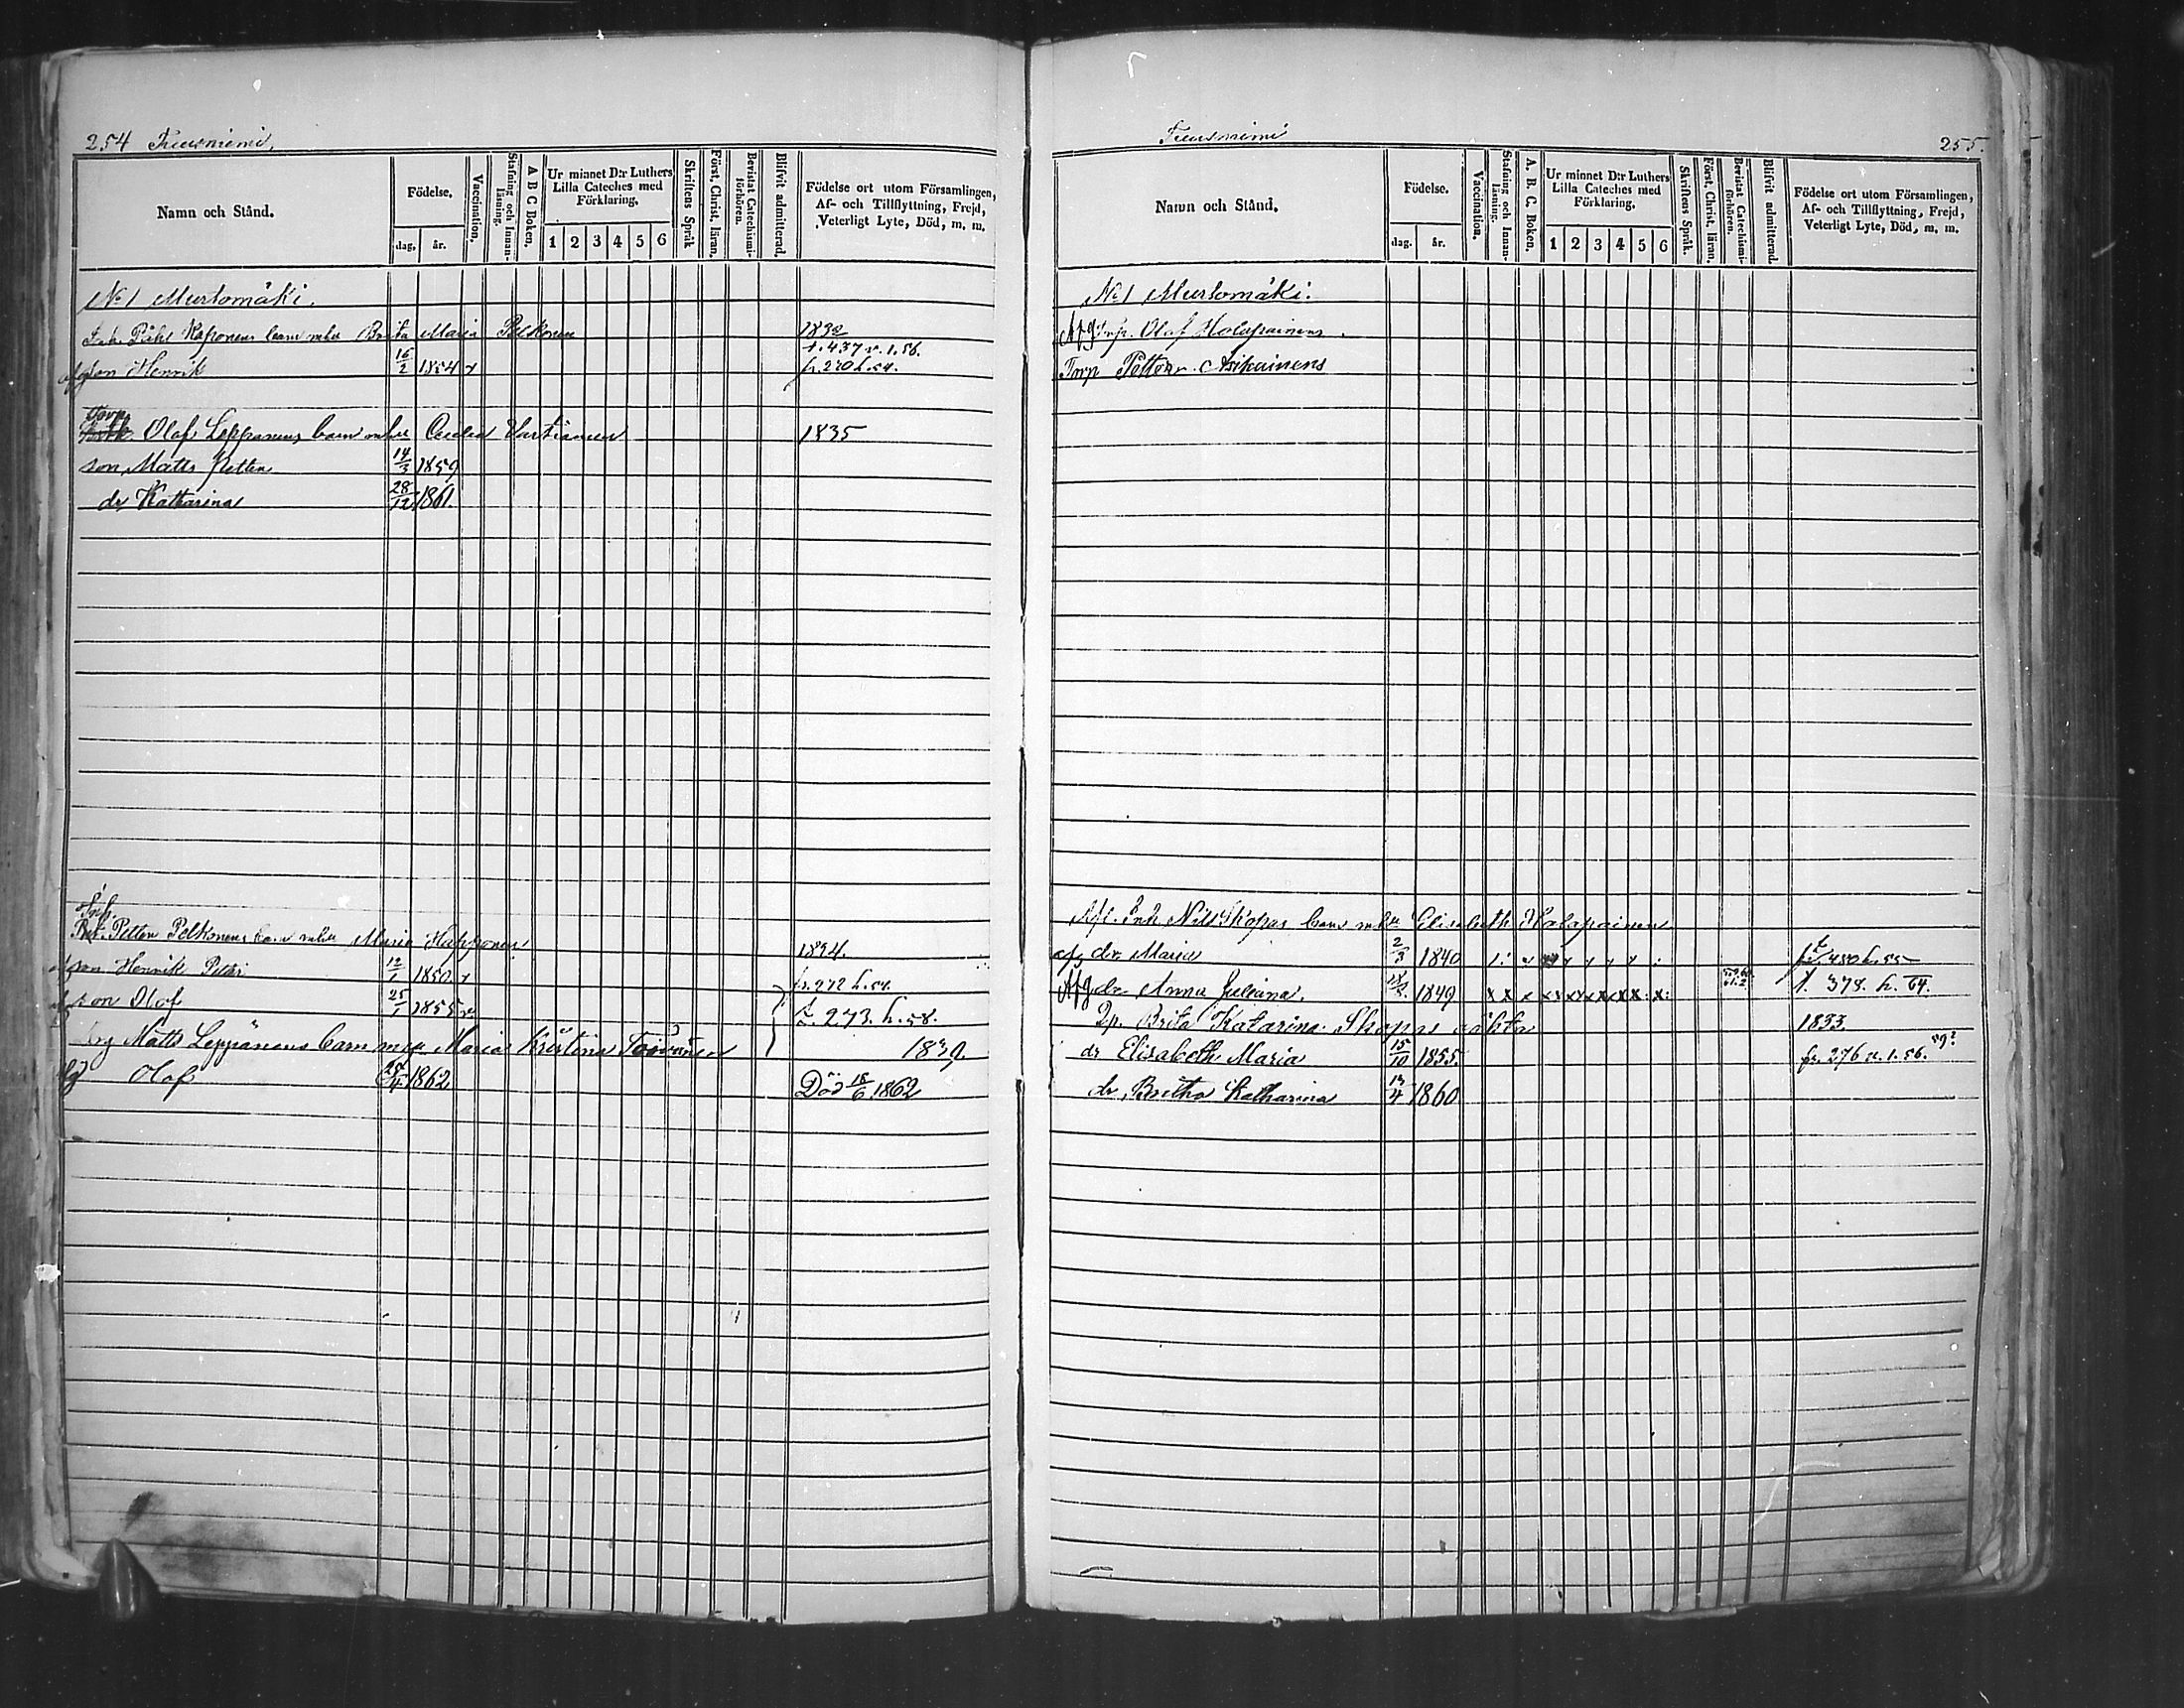 254
Namn och Stånd.
Födelse.
dag. år.
Vaccination.
Stafning och Innanläsning.
A B C Boken.
Ur minnet D:r Luthers Lilla Cateches med Förklaring.
1 2 3 4 5 6
Skriftens Språk
Först. Christ. läran.
Bevistat Catechismiförhören.
Blifvit admitterad.
Födelse ort utom Församlingen,
Af- och Tillflyttning, Frejd,
Veterligt Lyte, Död, m. m.
No 1 Murtomäki.
Inh. Påhl Kaponens barn m hu Brita Maria Pelkonen 1832
t. 437 v. 1. 56.
afg son Henrik 16/2 1854 fr. 270 h. 54.
Torp. Olof Leppänens barn m hu Cecilia Vartiainen 1835
son Matts Petter 14/3 1859
dr Katharina 28/12 1861.
Inh. Petter Pelkonens barn m hu Maria Happonen 1824.
afg son Henrik Petri 12/1 1850. fr. 272 h. 54.
afg son Olof 25/1 1855 t. 273. h. 58.
Matts Leppänens barn m hu Maria Kristina Toivanen 1839.
Olof 1862 Död 18/6 1862
Tuusniemi
255.
Namn och Stånd.
Födelse.
dag. år.
Vaccination.
Stafning och Innanläsning.
A. B. C. Boken.
Ur minnet D:r Luthers Lilla Cateches med Förklaring.
1 2 3 4 5 6
Skriftens Språk.
Först. Christ. läran.
Bevistat Catechismiförhören.
Blifvit admitterad.
Födelse ort utom Församlingen,
Af- och Tillflyttning, Frejd,
Veterligt Lyte, Död, m. m.
No 1 Murtomäki.
Afg Inp. Olof Holapainens
Torp Petter Asikainens
Afl. Inh Nils Skopas barn m hu Elisabeth Holapainen
afg dr Maria 2/3 1840 450 h. 55
Afg dr Anna Juliana. 1849 t. 378. h. 64.
Brita Katarina Skopa 1833
dr Elisabeth Maria 15/10 1855. fr. 276 v. 1. 56. 59?
dr Britha Katharina 13/4 1860